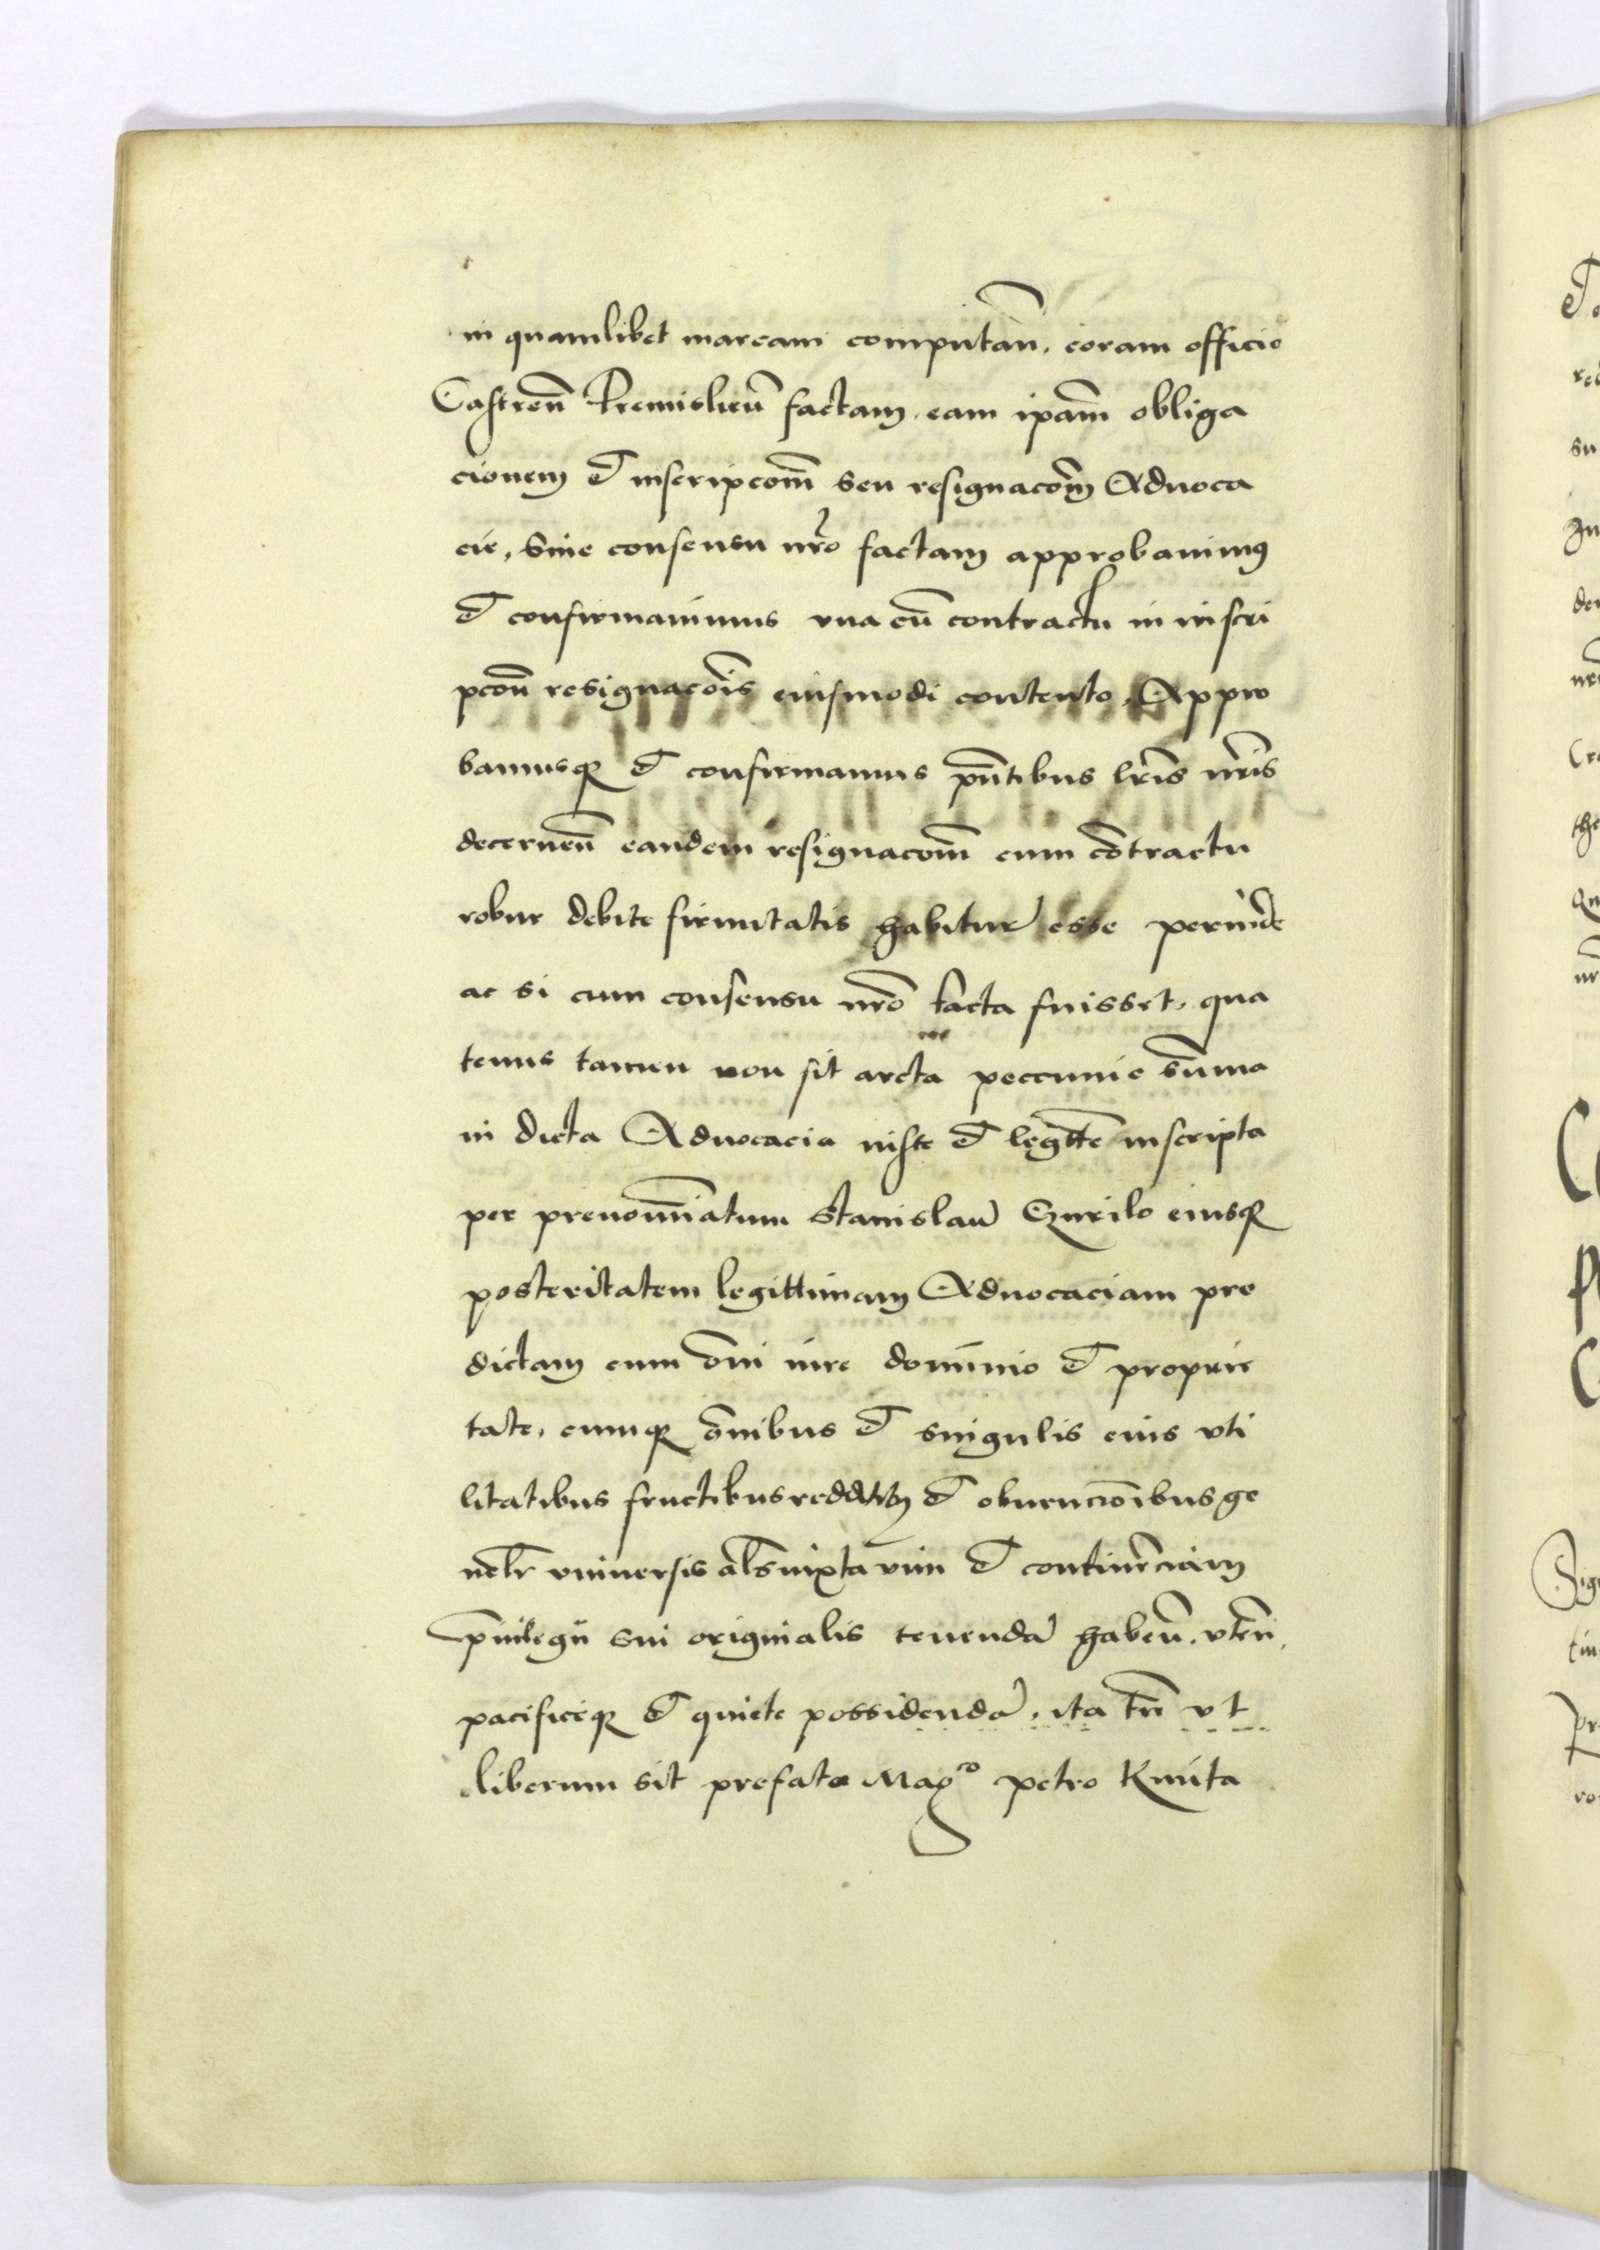 in quamlibet marcam computan̄. coram officio
Castren̄ Premislien̄ factam. eam ip̄am obliga
cionem et inscripcōm seu resignacōm Aduoca
cie, Sine consensu nr̄o factam approbauimus
et confirmauimus vna cū contractu in inscri
pcōn resignacōis eiusmodi contento. Appro
bamusq et confirmamus p̄ntibus lr̄is nr̄is
decernen̄ eandem resignacōm cum cōtractu
robur debite firmitatis habiturā esse perinde
ac si cum consensu nr̄o facta fuisset. qua
tenus tamen non sit arcta peccunie sum̄a
in dicta Aduocacia iuste et legitt̄e inscripta
per prenoīatum Stanislaū Kurilo eiusq
posteritatem legittimam Aduocaciam pre
dictam cum om̄i iure dominio et proprie
tate. cumq om̄ibus et singulis eius vti
litatibus fructibus redditib et obuencōibus ge
nelr̄ vniuersis als iuxta vim et continēciam
p̄uilegii sui originalis tenendā haben̄. vten̄.
pacificeq et quiete possidendā. ita tn̄ vt
liberum sit prefato Magco petro Kmita